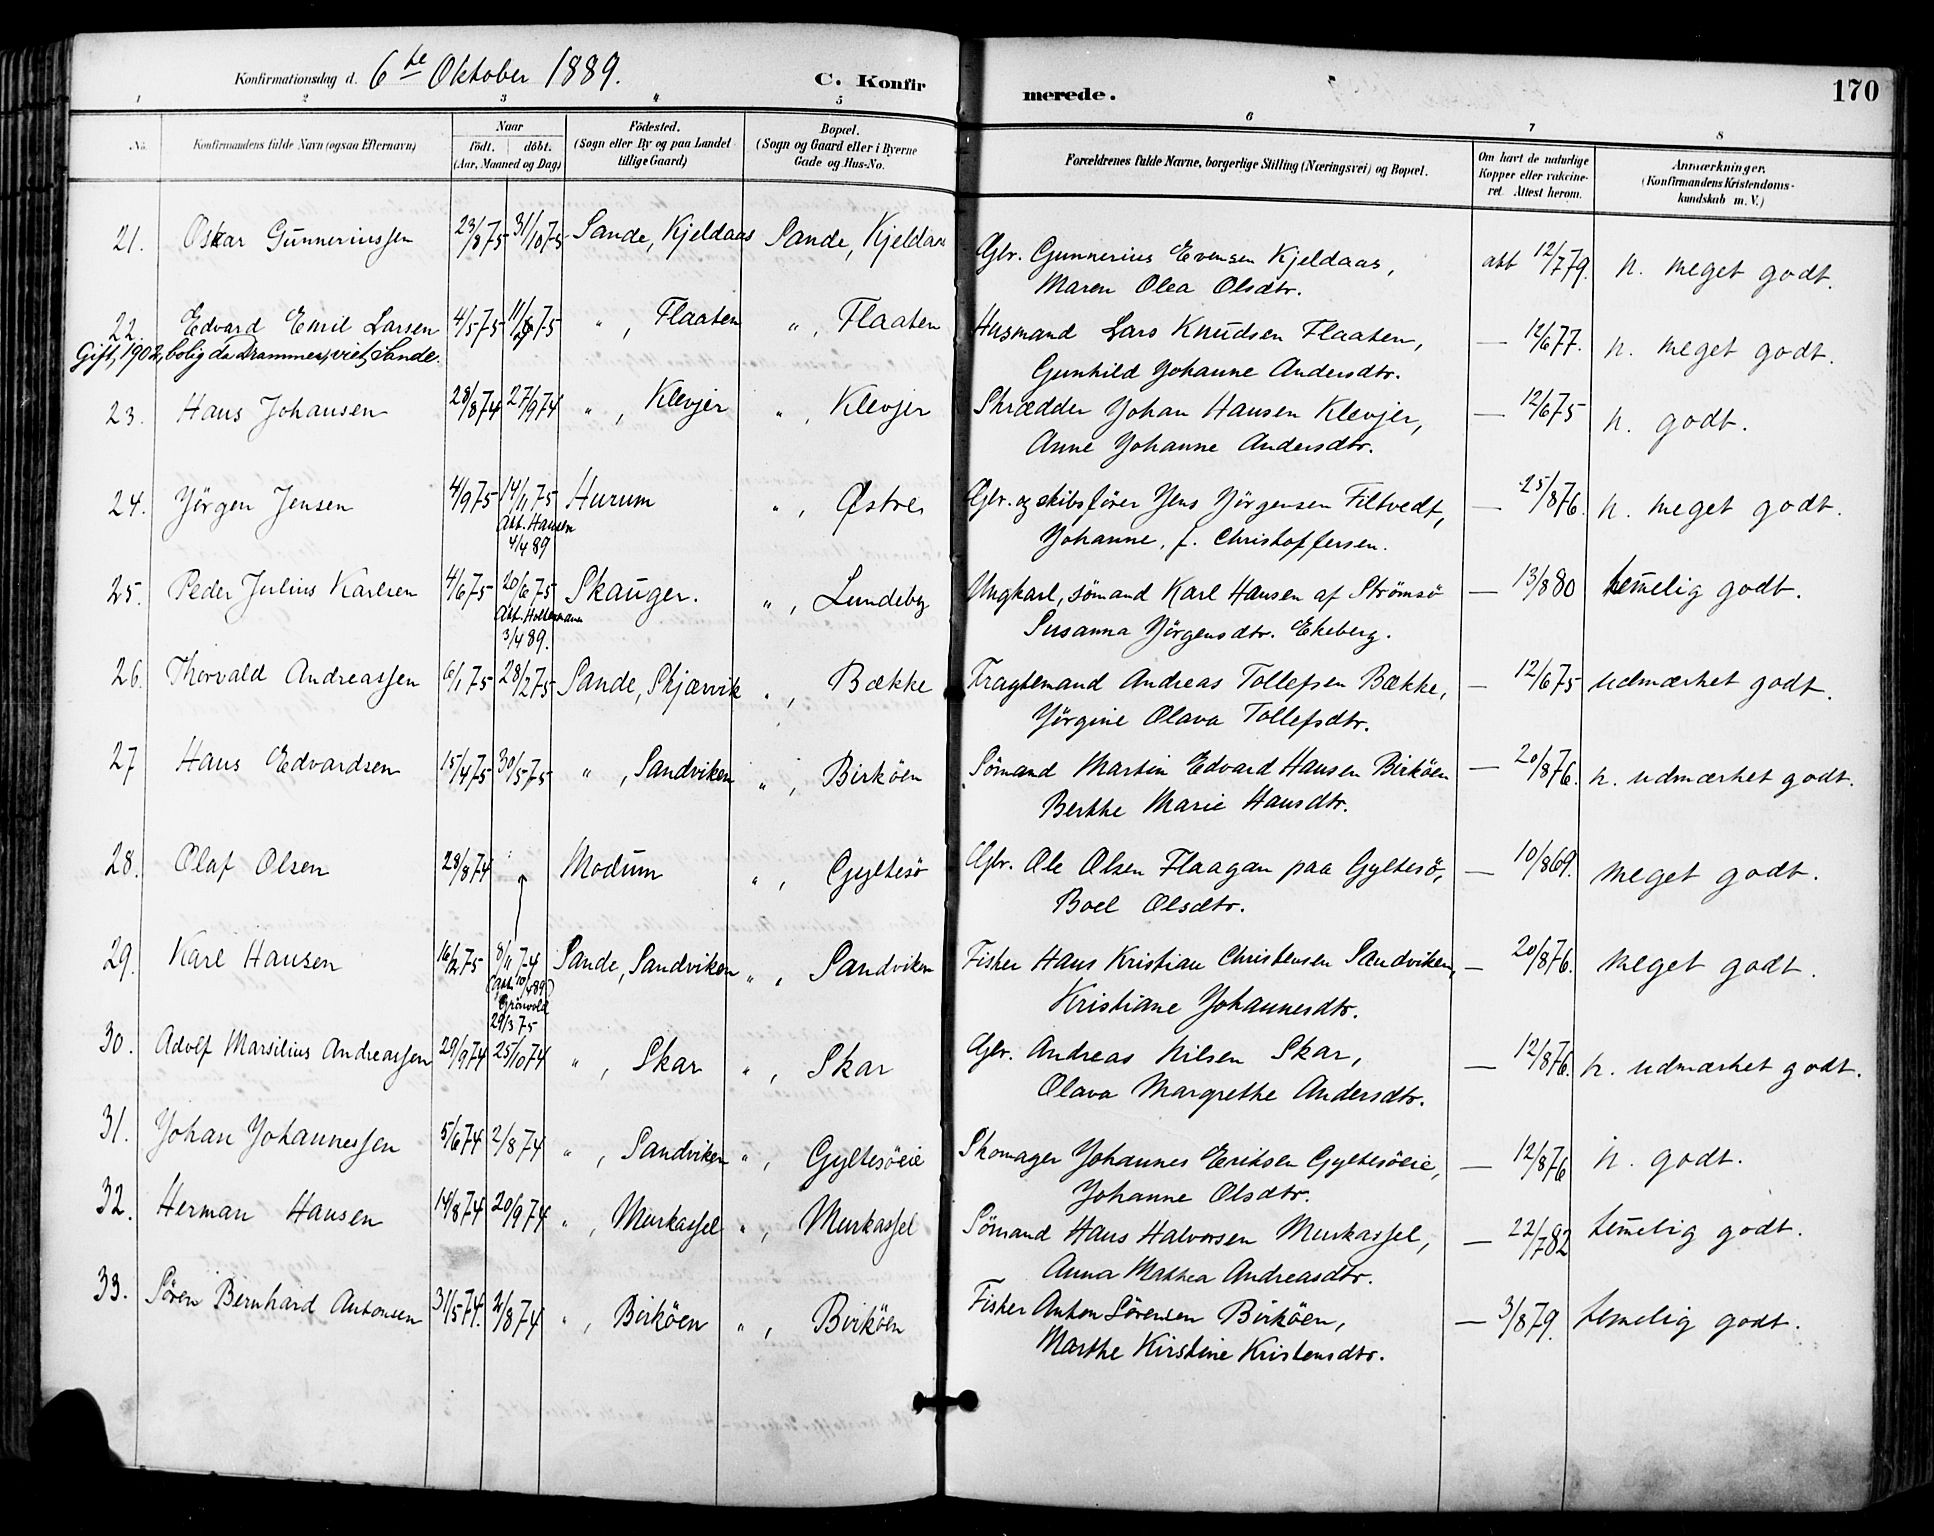 Konfirmationsdag d. 6te Oktober 1889. C. Konfir merede. 170
1 2 3 4 5 6 7 8
No. Konfirmandens fulde Navn (ogsaa Efternavn)
Naar
födt. döbt.
(Aar, Maaned og Dag)
Födested.
(Sogn eller By og paa Landet
tillige Gaard)
Bopæl.
(Sogn og Gaard eller i Byerne
Gade og Hus-No.
Forældrenes fulde Navne, borgerlige Stilling (Næringsvei) og Bopæl.
Om havt de naturlige
Kopper eller vakcine-
ret. Attest herom.
Anmærkninger.
(Konfirmandens Kristendoms-
kundskab m. V.)
21. Oskar Gunneriussen 23/8 75 31/10 75 Sande, Kjeldaas Sande, Kjeldaas Gbr. Gunnerius Evensen Kjeldaas, att 12/7 79. n. meget godt.
Maren Olea Olsdtr.
22. Edvard Emil Larsen 4/5 75 11/ 75 " , Flaaten " , Flaaten Husmand Lars Knudsen Flaaten, — 12/6 77. n. meget godt.
Gift, 1902, bolig da Drammen, viet, Sande. Gunhild Johanne Andersdtr.
23. Hans Johansen 28/8 74 27/9 74 " , Klevjer " , Klevjer Skrædder Johan Hansen Klevjer, — 12/6 75 n. godt.
Anne Johanne Andersdtr.
24. Jörgen Jensen 4/9 75 14/11 75 Hurum " , Østre Gbr. og skibsförer Jens Jörgensen Filtvedt, — 25/8 76. n. meget godt.
Att. Hansen Johanne, f. Christoffersen.
4/4 89
25. Peder Julius Karlsen 4/6 75 20/6 75 Skauger. " , Lundeby Ungkarl, sömand Karl Hansen af Strömsö — 13/8 80 temelig godt.
Att. Holtermann Susanna Jörgensdtr. Ekeberg.
3/4 89.
26. Thorvald Andreassen 6/1 75 28/2 75 Sande, Skjærvik " , Bække Fragtemand Andreas Tollefsen Bække, — 12/6 75 udmærket godt.
Jörgine Olava Tollefsdtr.
27 Hans Edvardsen 15/4 75 30/5 75 " , Sandviken " , Birköen Sömand Martin Edvard Hansen Birköen — 20/8 76. n. udmærket godt.
Berthe Marie Hansdtr.
28. Olaf Olsen 28/8 74 Modum " , Gyltesö Gbr. Ole Olsen Flaagan paa Gyltesö, — 10/8 69. meget godt.
Boel Olsdtr.
29. Karl Hansen 16/2 75 8/11 74 Sande, Sandviken " , Sandviken Fisker Hans Kristian Christensen Sandviken, — 20/8 76. meget godt.
(Att. 10/4 89) Kristiane Johannesdtr.
Grönvold
29/3 75
30. Adolf Marsilius Andreassen 29/9 74 25/10 74 " , Skar " , Skar Gbr. Andreas Nilsen Skar, — 12/8 76. n. udmærket godt.
Olava Margrethe Andersdtr.
31. Johan Johannessen 5/6 74 2/8 74 " , Sandviken " , Gyltesöeie Skomager Johannes Eriksen Gyltesöeie, — 12/8 76 n. godt.
Johanne Olsdtr.
32. Herman Hansen 14/8 74 20/9 74 " , Murkassel " , Murkassel Sömand Hans Halvorsen Murkassel, — 22/7 82 temelig godt.
Anna Mathea Andreasdtr.
33. Sören Bernhard Antonsen 31/5 74. 2/8 74 " , Birköen " , Birköen Fisker Anton Sörensen Birköen, — 3/8 79. temelig godt.
Marthe Kirstine Kristensdtr.